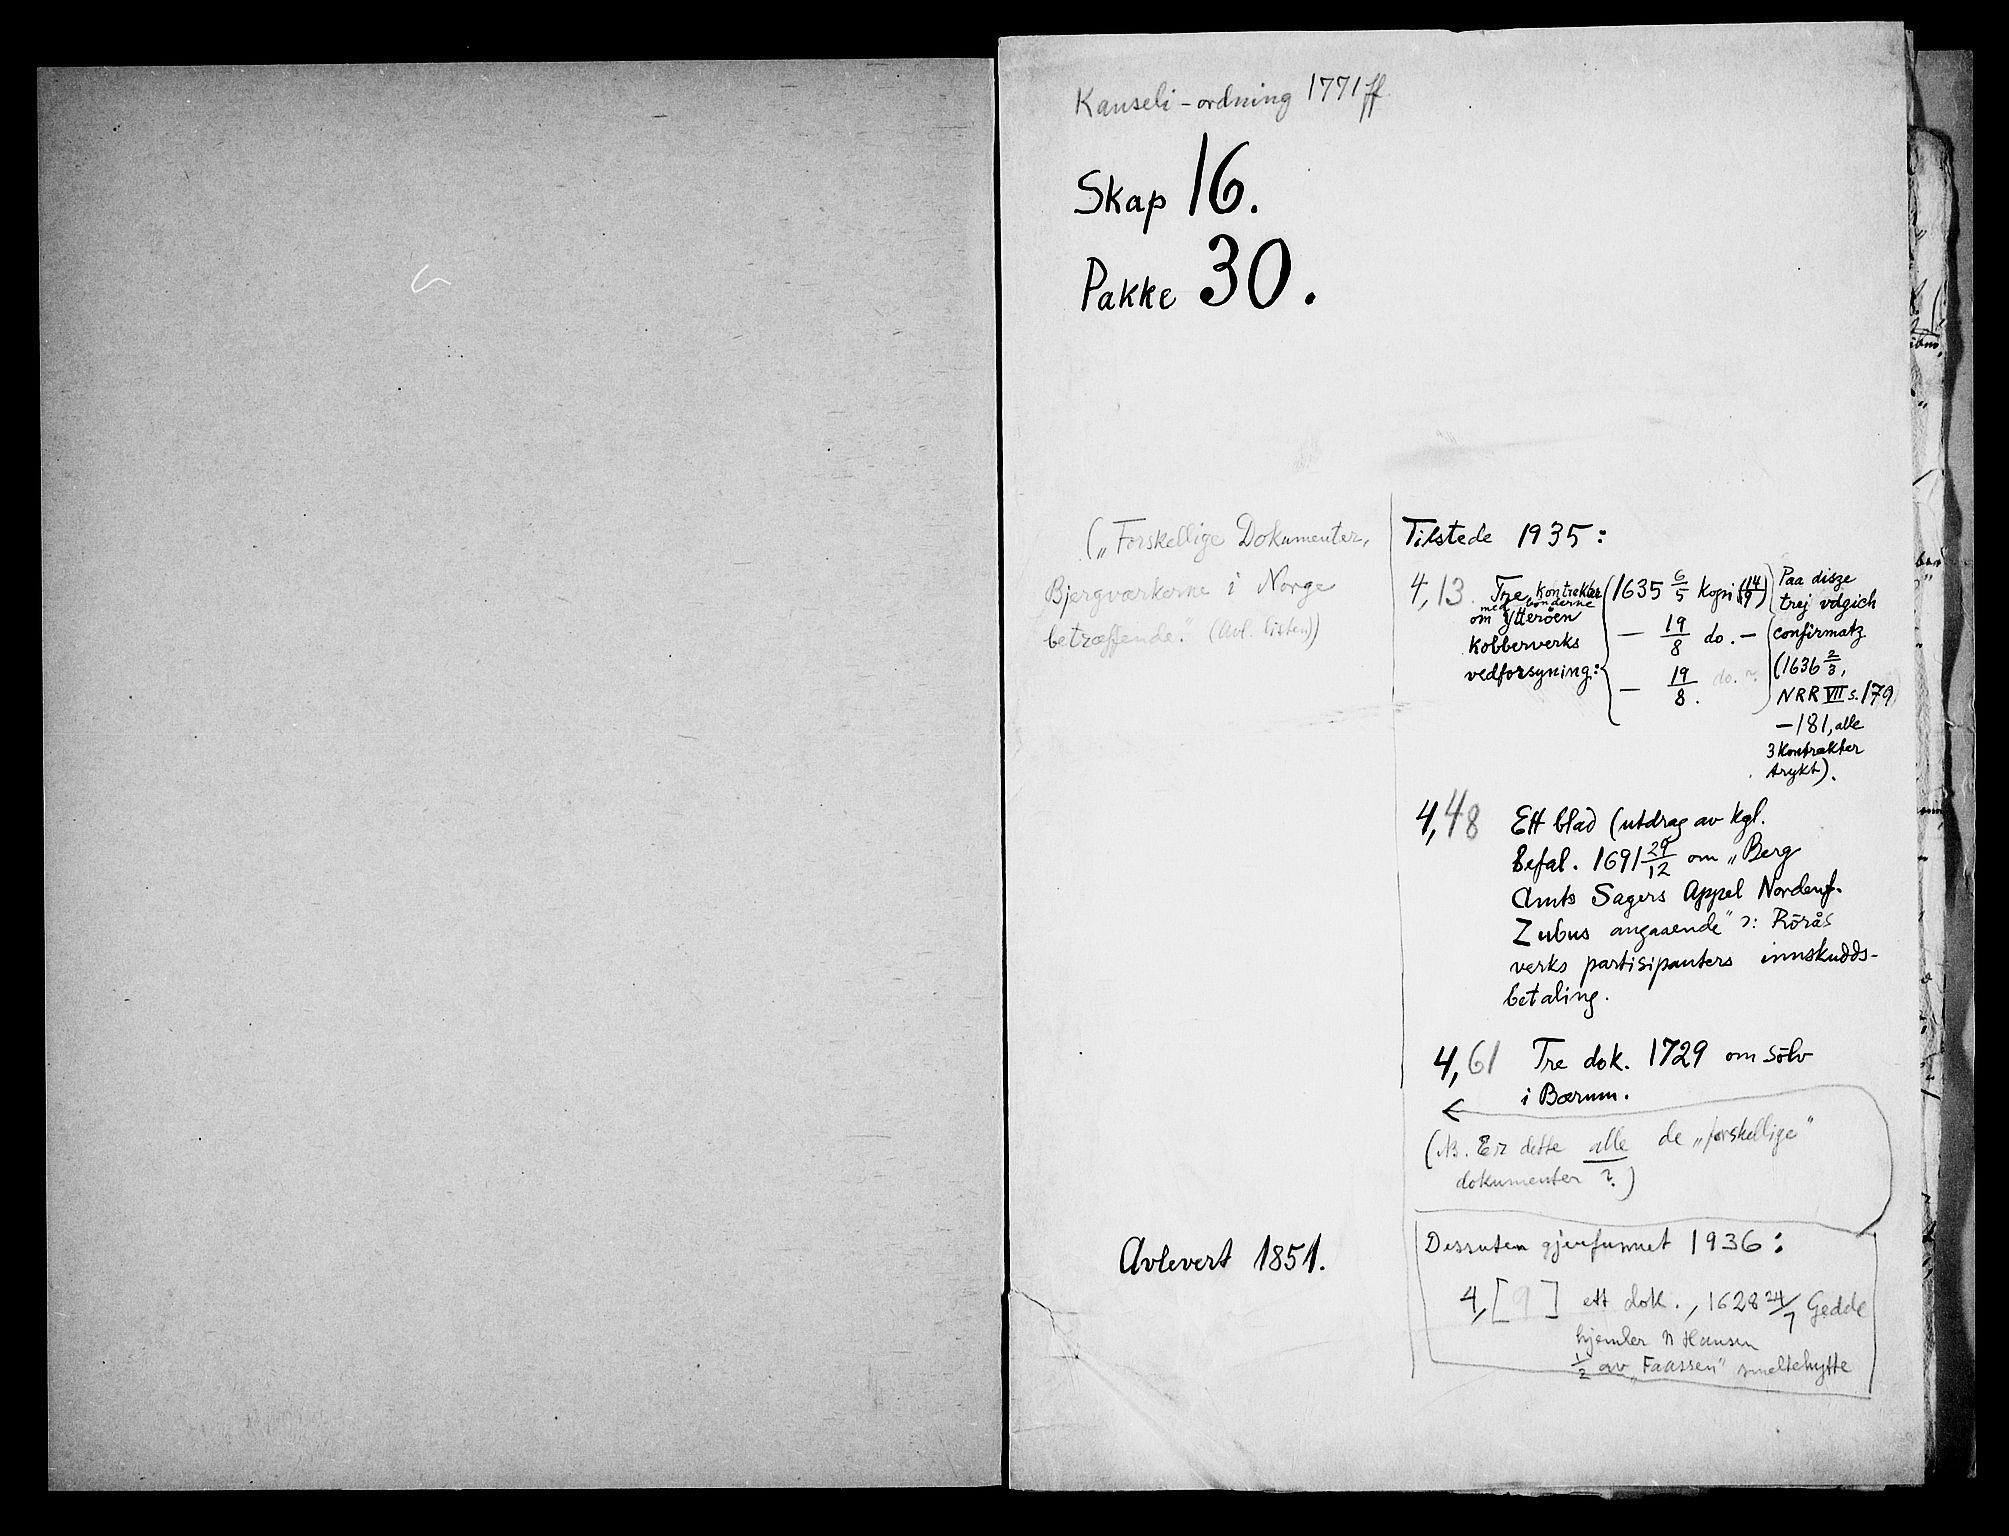 Kanseli-ordning 1771 ff
Skap 16.
Pakke 30.
(„Forskellige Dokumenter,
Bjergværkerne i Norge
betræffende.“ (Avl. listen))
Avlevert 1851.
Tilstede 1935:
4,13. Tre kontrakter
med bønderne
om Ytterøen
kobberverks
vedforsyning:
1635 6/5 kopi (14/9)
— 19/8 do. —
— 19/8. do. ?
Paa disze
trej vdgich
confirmatz
(1636 2/3,
NRR VII s. 179
—181, alle
3 kontrakter
trykt).
4,48 Ett blad (utdrag av kgl.
befal. 1691 29/12 om „Berg
Amts Sagers Appel Nordenf.
angaaende“ ɔ: Rörås
verks partisipanters innskudds-
betaling.
4,61 Tre dok. 1729 om sölv
i Bærum.
(NB. Er dette alle de „forskellige“
dokumenter ?)
Dessuten gjenfunnet 1936:
4,[9] ett dok., 1628 24/7 Gedde
hjemler N Hansen
1/2 av „Faassen“ smeltehytte